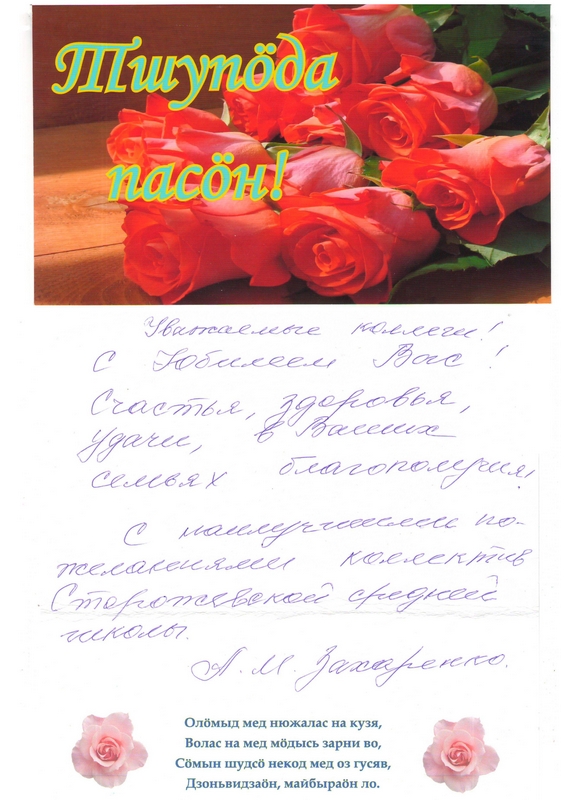 Тшупöда
пасöн!
Уважаемые коллеги!
С Юбилеем Вас!
Счастья, здоровья,
удачи, в Ваших
семьях благополучия,
С наилучшими по-
желаниями коллектив
Сторожевской средней
школы.
А. М. Захаренко.
Олöмыд мед нюжалас на кузя,
Волас на мед мöдысь зарни во,
Сöмын шудсö некод мед оз гусяв,
Дзоньвидзаöн, майбыраöн ло.